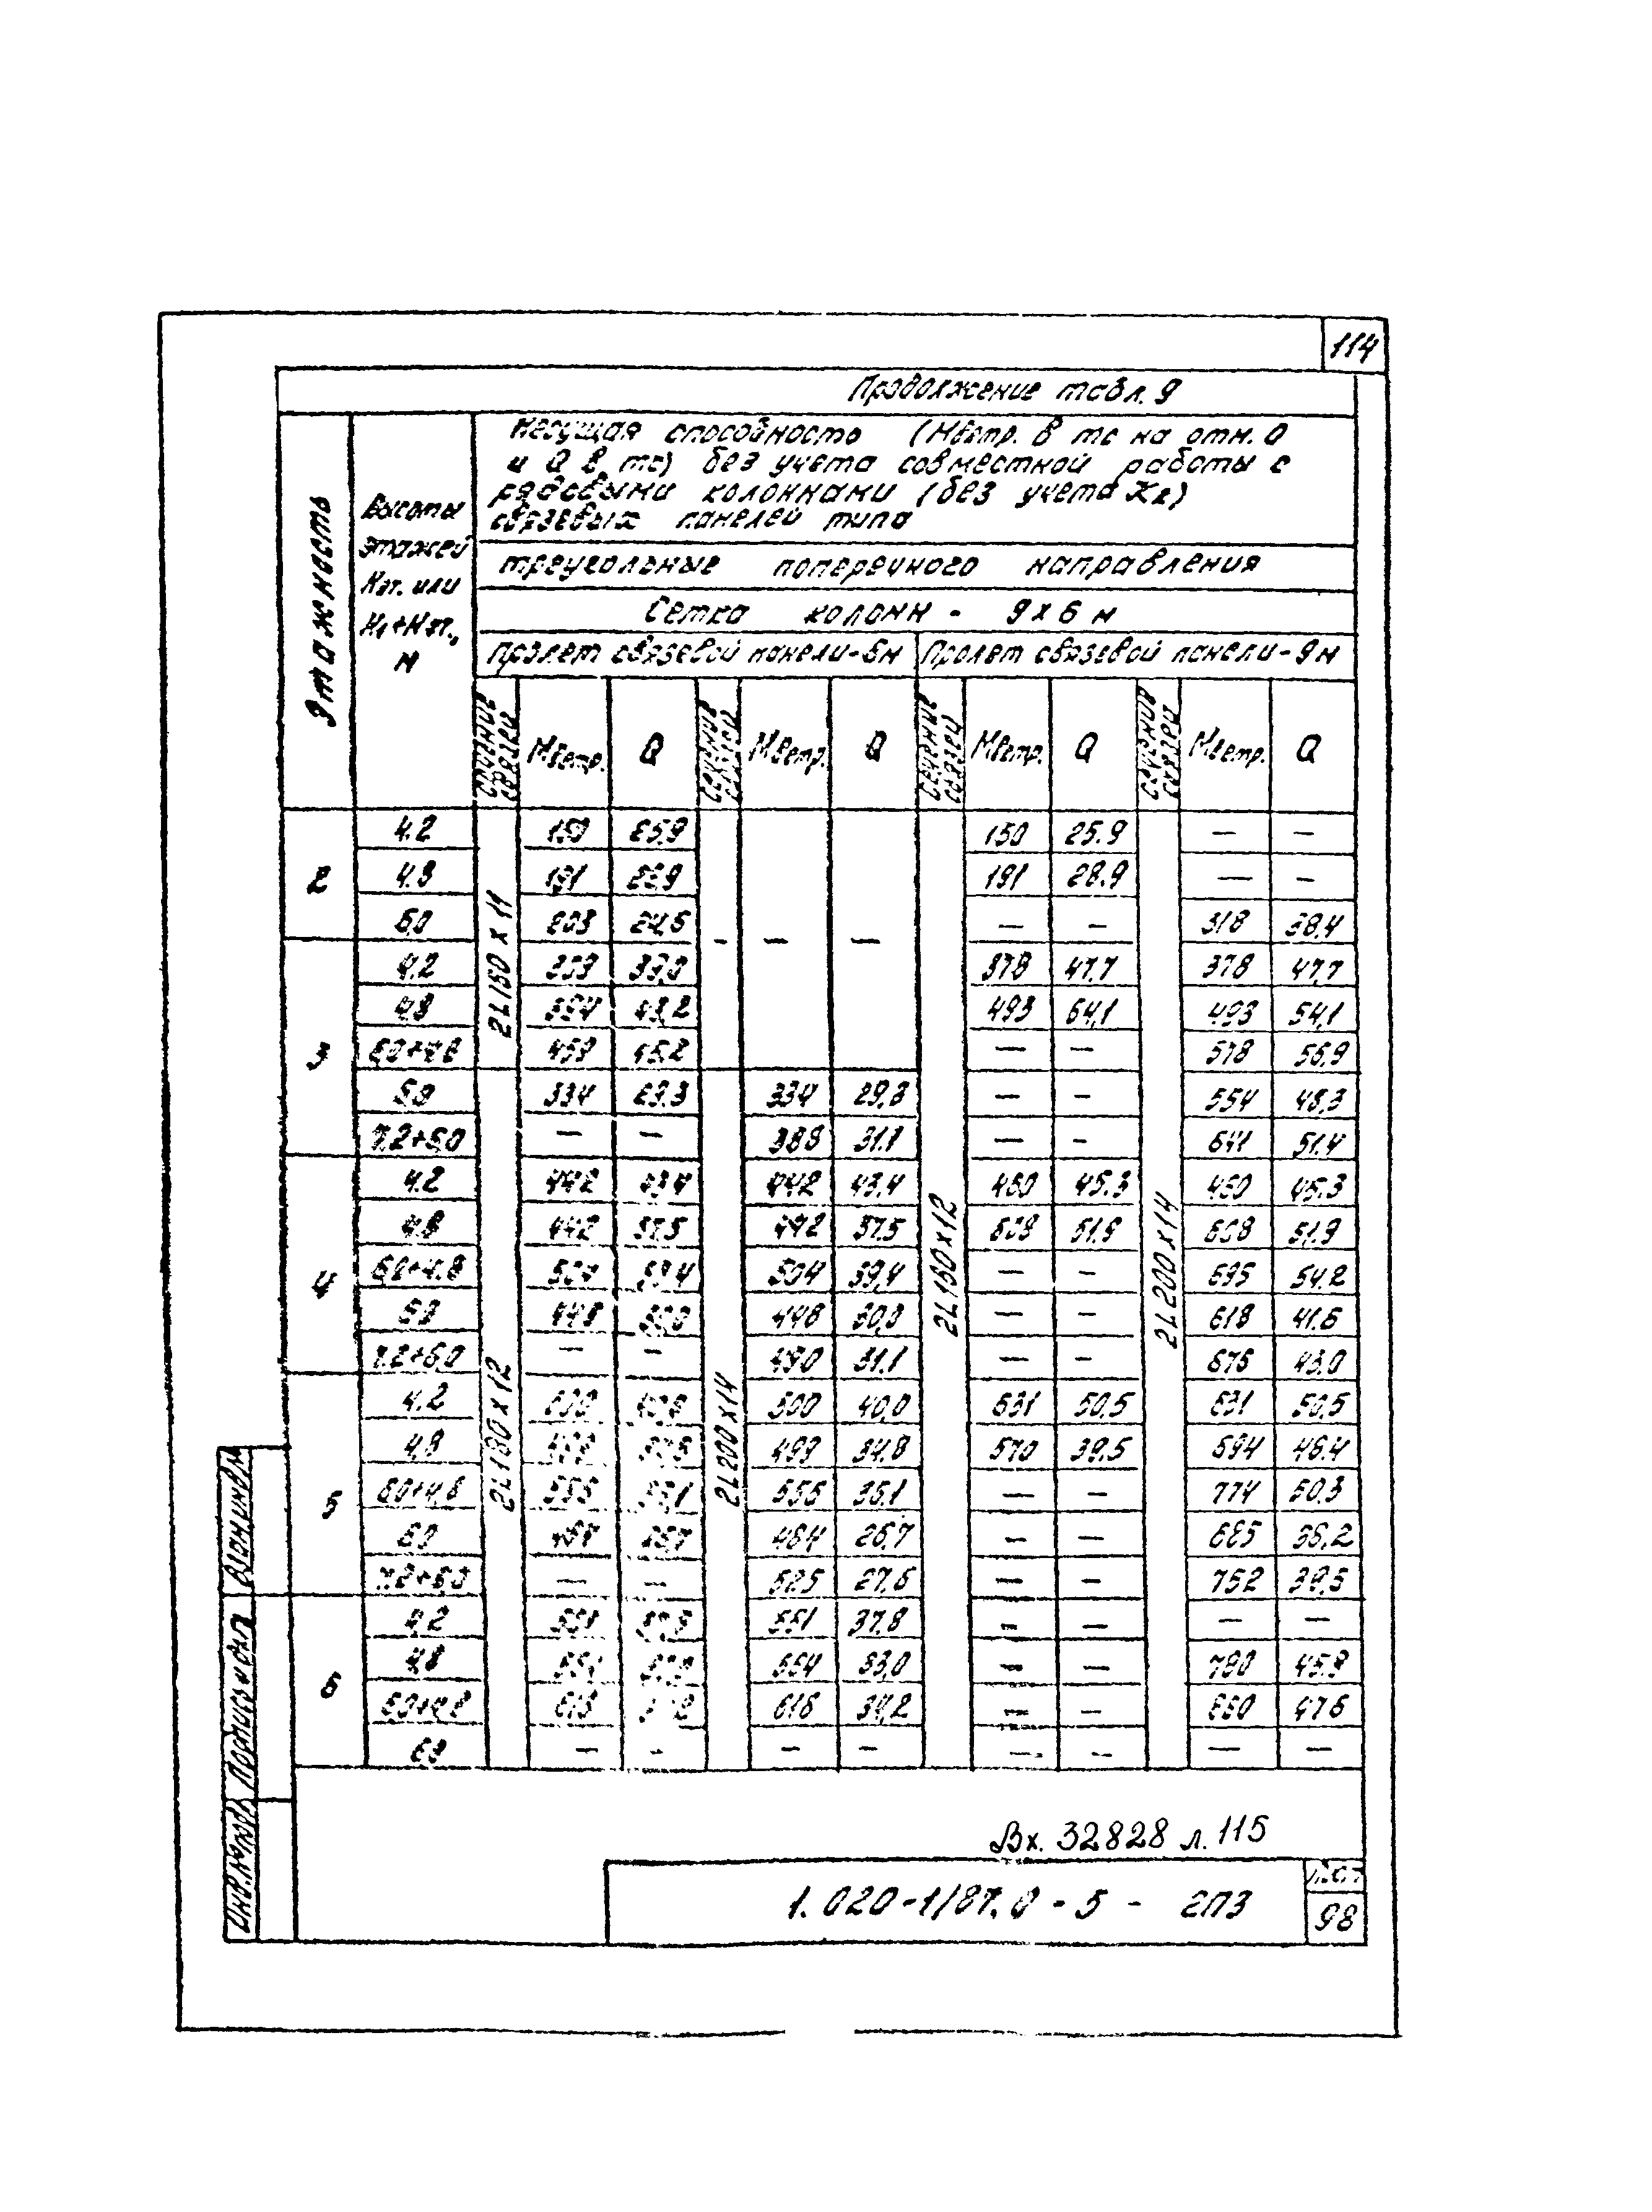 114
Продолжение табл. 9
Этажность
Высоты
этажей
Нэт. или
Н1+Нэт.,
м
Несущая способность (Мветр. в тс на отм. 0
и Q в тс) без учета совместной работы с
рядовыми колоннами (без учета К2)
связевых панелей типа
треугольные поперечного направления
Сетка колонн - 9х6 м
Пролет связевой панели-6м Пролет связевой панели-9м
Сечение связей Мветр. Q Сечение связей Мветр. Q Сечение связей Мветр. Q Сечение связей Мветр. Q
2L160х11 - - - 2L180х12 2L200х14
2L180х12 2L200х14
2
4.2 150 25.9 150 25.9 — —
4.8 191 28.9 191 28.9 — —
6.0 203 24.6 — — 318 38.4
3
4.2 378 47.7 378 47.7
4.8 43.2 493 54.1 493 54.1
6.0+4.8 459 45.2 — — 578 56.9
6.0 334 29.3 334 29.3 — — 554 48.3
7.2+6.0 — — 388 31.1 — — 641 51.4
4
4.2 442 43.4 442 43.4 460 45.3 460 45.3
4.8 442 37.5 442 37.5 608 51.9 608 51.9
6.0+4.8 504 39.4 504 39.4 — — 695 54.2
6.0 448 30.0 448 30.0 — — 618 41.6
7.2+6.0 — — 490 31.1 — — 43.0
5
4.2 500 40.0 631 50.5 631 50.5
4.8 499 34.8 570 39.5 594 46.4
6.0+4.8 35.1 — — 774 50.3
6.0 26.7 — — 685 36.2
7.2+6.0 — — 525 27.6 — — 752 39.5
6
4.2 551 37.8 — — — —
4.8 554 33.0 — — 780 45.9
6.0+4.8 616 616 34.2 — — 47.6
6.0 — — — — — — — —
Взам.инв.№
Подпись и дата
Инв.№ подл.
Вх. 32828 л. 115
1.020-1/87.0-5- 2ПЗ
Лист
98